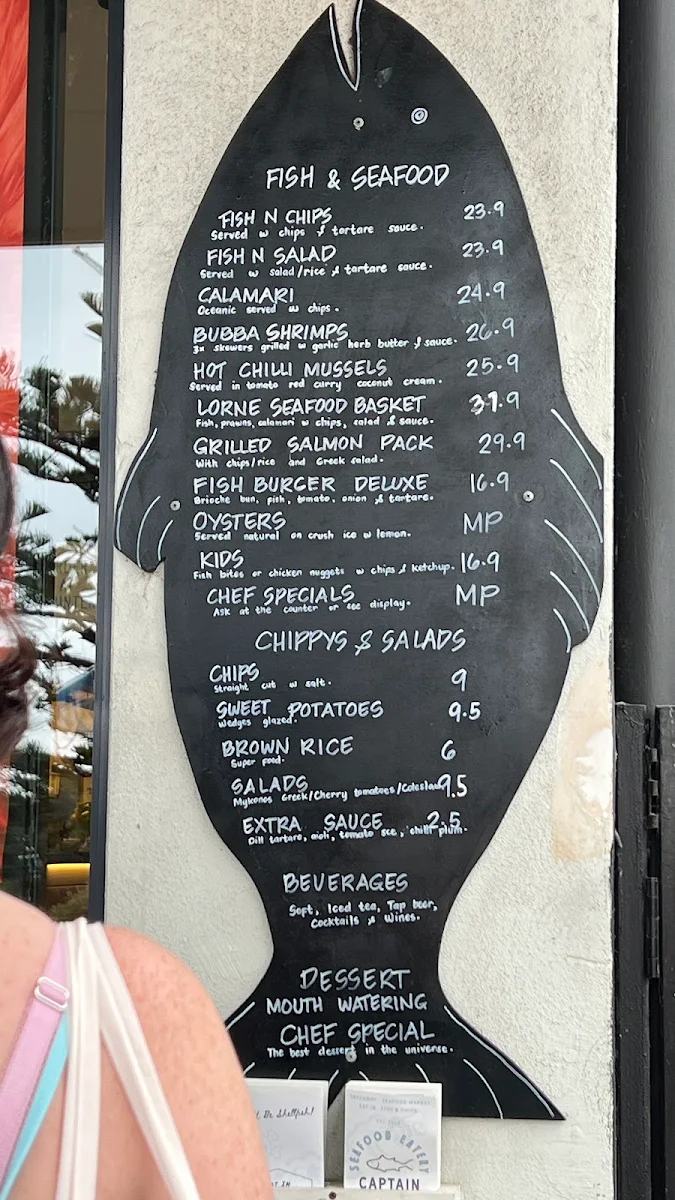 FISH & SEAFOOD
FISH N CHIPS 23.9
Served w chips & tartare sauce.
FISH N SALAD 23.9
Served w salad/rice & tartare sauce.
CALAMARI 24.9
Oceanic served w chips.
BUBBA SHRIMPS 26.9
3x skewers grilled w garlic herb butter & sauce.
HOT CHILLI MUSSELS 25.9
Served in tomato red curry coconut cream.
LORNE SEAFOOD BASKET 37.9
Fish, prawns, calamari w chips, salad & sauce.
GRILLED SALMON PACK 29.9
With chips/rice and Greek salad.
FISH BURGER DELUXE 16.9
Brioche bun, fish, tomato, onion & tartare.
OYSTERS MP
Served natural on crush ice w lemon.
KIDS 16.9
Fish bites or chicken nuggets w chips & ketchup.
CHEF SPECIALS MP
Ask at the counter or see display.
CHIPPYS & SALADS
CHIPS 9
Straight cut w salt.
SWEET POTATOES 9.5
Wedges glazed.
BROWN RICE 6
Super food.
SALADS 9.5
Mykonos Greek/Cherry tomatoes/Coleslaw
EXTRA SAUCE 2.5
Dill tartare, aioli, tomato sce, chilli plum.
BEVERAGES
Soft, Iced tea, Tap beer,
Cocktails & Wines.
DESSERT
MOUTH WATERING
CHEF SPECIAL
The best dessert in the universe.
Be Shellfish!
SEAFOOD EATERY
CAPTAIN